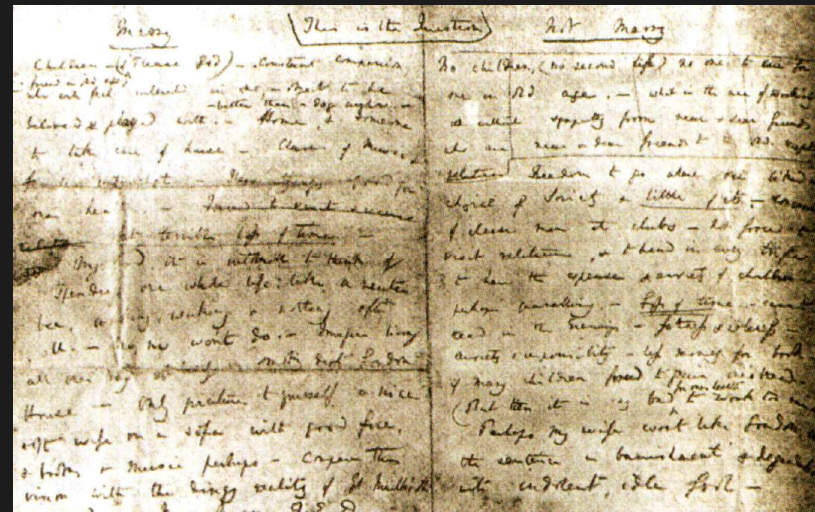 This is the Question
Marry
Children — (if Please God) — Constant companion,
who will feel interested in one, — object to be
— better than a dog anyhow. —
beloved & played with. — Home, & someone
to take care of house — Charms of Music &
These things good for
one's health. — Forced to visit &
relations but terrible loss of time. —
My God, it is intolerable to think of
spending one whole life, like a neuter
bee, working, working, & nothing after
all. — No, no won't do. — Imagine living
all one's day smoky dirty London
House. — Only picture to yourself a nice
soft wife on a sofa with good fire,
& books & music perhaps — Compare this
vision with the dingy reality of Gt Marlbro'
Not Marry
No children, (no second life) no one to care for
one in old age. — What is the use of working
without sympathy from near & dear friends
who are near & dear friends to the old, except
relatives Freedom to go where one liked —
choice of Society & little of it. —
of clever men at clubs — Not forced to
visit relatives, & to bend in every trifle —
to have the expense & anxiety of children —
perhaps quarrelling — Loss of time. — cannot
read in the Evenings — fatness & idleness —
anxiety & responsibility — less money for books
if many children forced to gain one's bread. —
(But then it is very bad for ones health to work too
Perhaps my wife wont like London
the sentence is banishment & degradation
with indolent, idle fool —